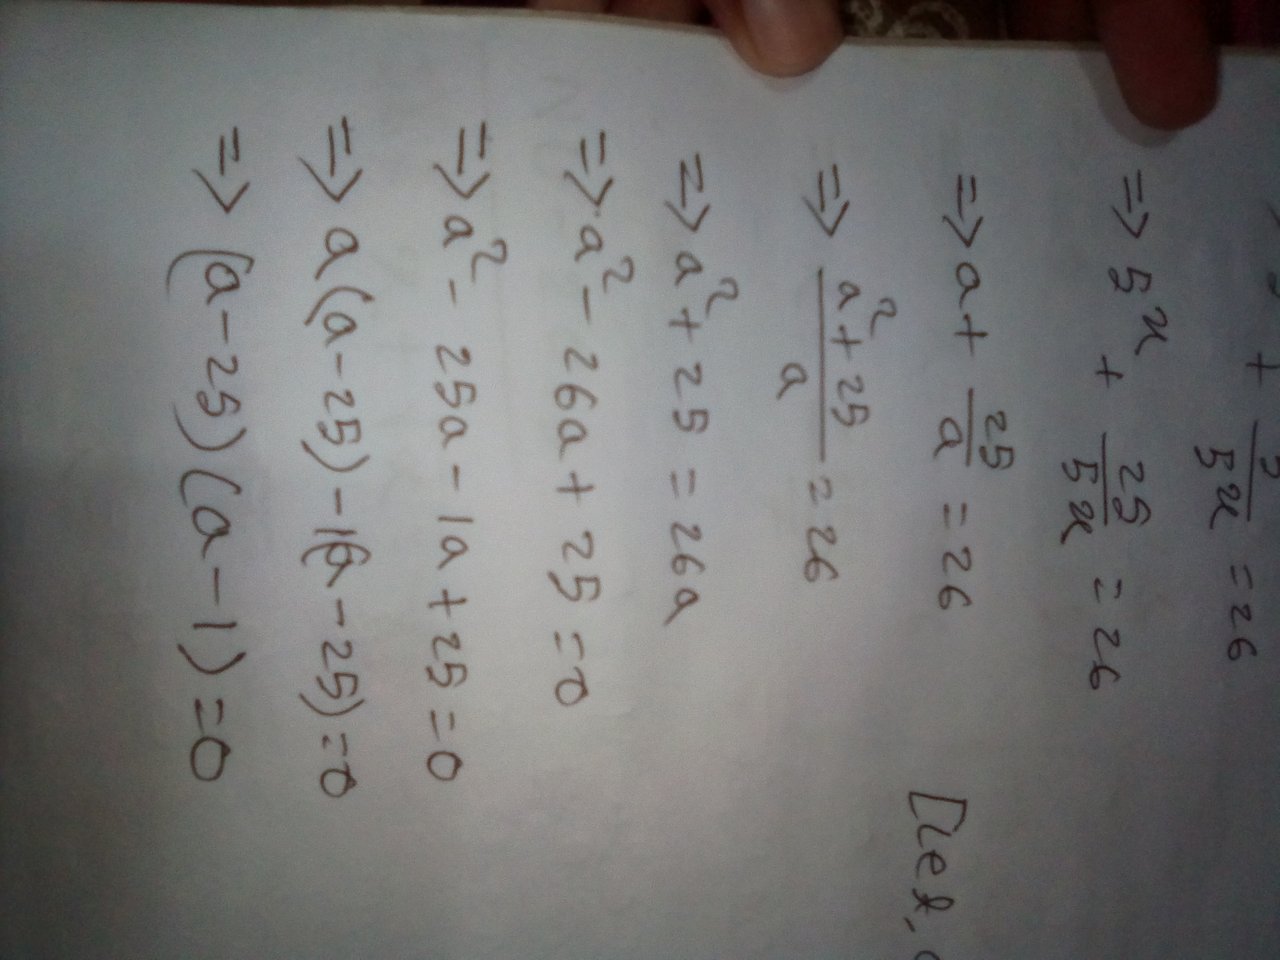 + 5/5^x = 26
=> 5^x + 25/5^x = 26
=> a + 25/a = 26 [Let,
=> (a^2 + 25)/a = 26
=> a^2 + 25 = 26a
=> a^2 - 26a + 25 = 0
=> a^2 - 25a - 1a + 25 = 0
=> a(a - 25) - 1(a - 25) = 0
=> (a - 25)(a - 1) = 0